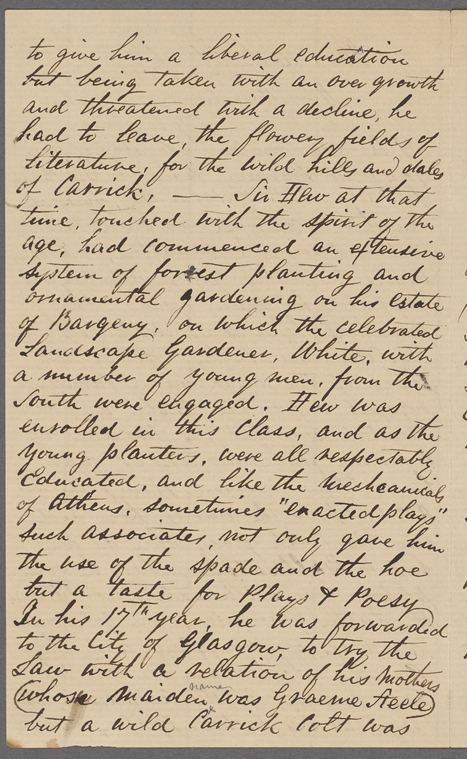 to give him a liberal education
but being taken with an over growth
and threatened with a decline, he
had to leave, the flowery fields of
Literature, for the wild hills and dales
of Carrick, — Sir Hew at that
time, touched with the spirit of the
age, had commenced an extensive
system of forrest planting and
ornamental gardening on his Estate
of Bargeny, on which the celebrated
Landscape Gardener, White, with
a number of young men, from the
South were engaged. Hew was
enrolled in this Class, and as the
young planters, were all respectably
Educated, and like the Mechanicals
of Athens, sometimes "enacted plays"
such associates not only gave him
the use of the spade and the hoe
but a taste for Plays & Poesy
In his 17th year, he was forwarded
to the City of Glasgow, to try the
Law with a relation of his mothers
(whose maiden name was Graeme Steele)
but a wild Carrick Colt was